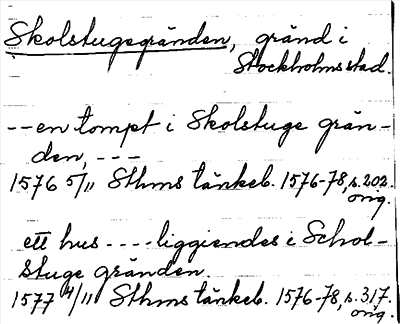 Skolstugegränden, gränd i
Stockholms stad.
-- en tompt i Skolstuge grän-
den, - - -
1576 5/11 Sthms tänkeb. 1576-78, s. 202.
orig.
ett hus - - - - liggiendes i Schol-
stuge gränden.
1577 4/11 Sthms tänkeb. 1576-78, s. 317.
orig.